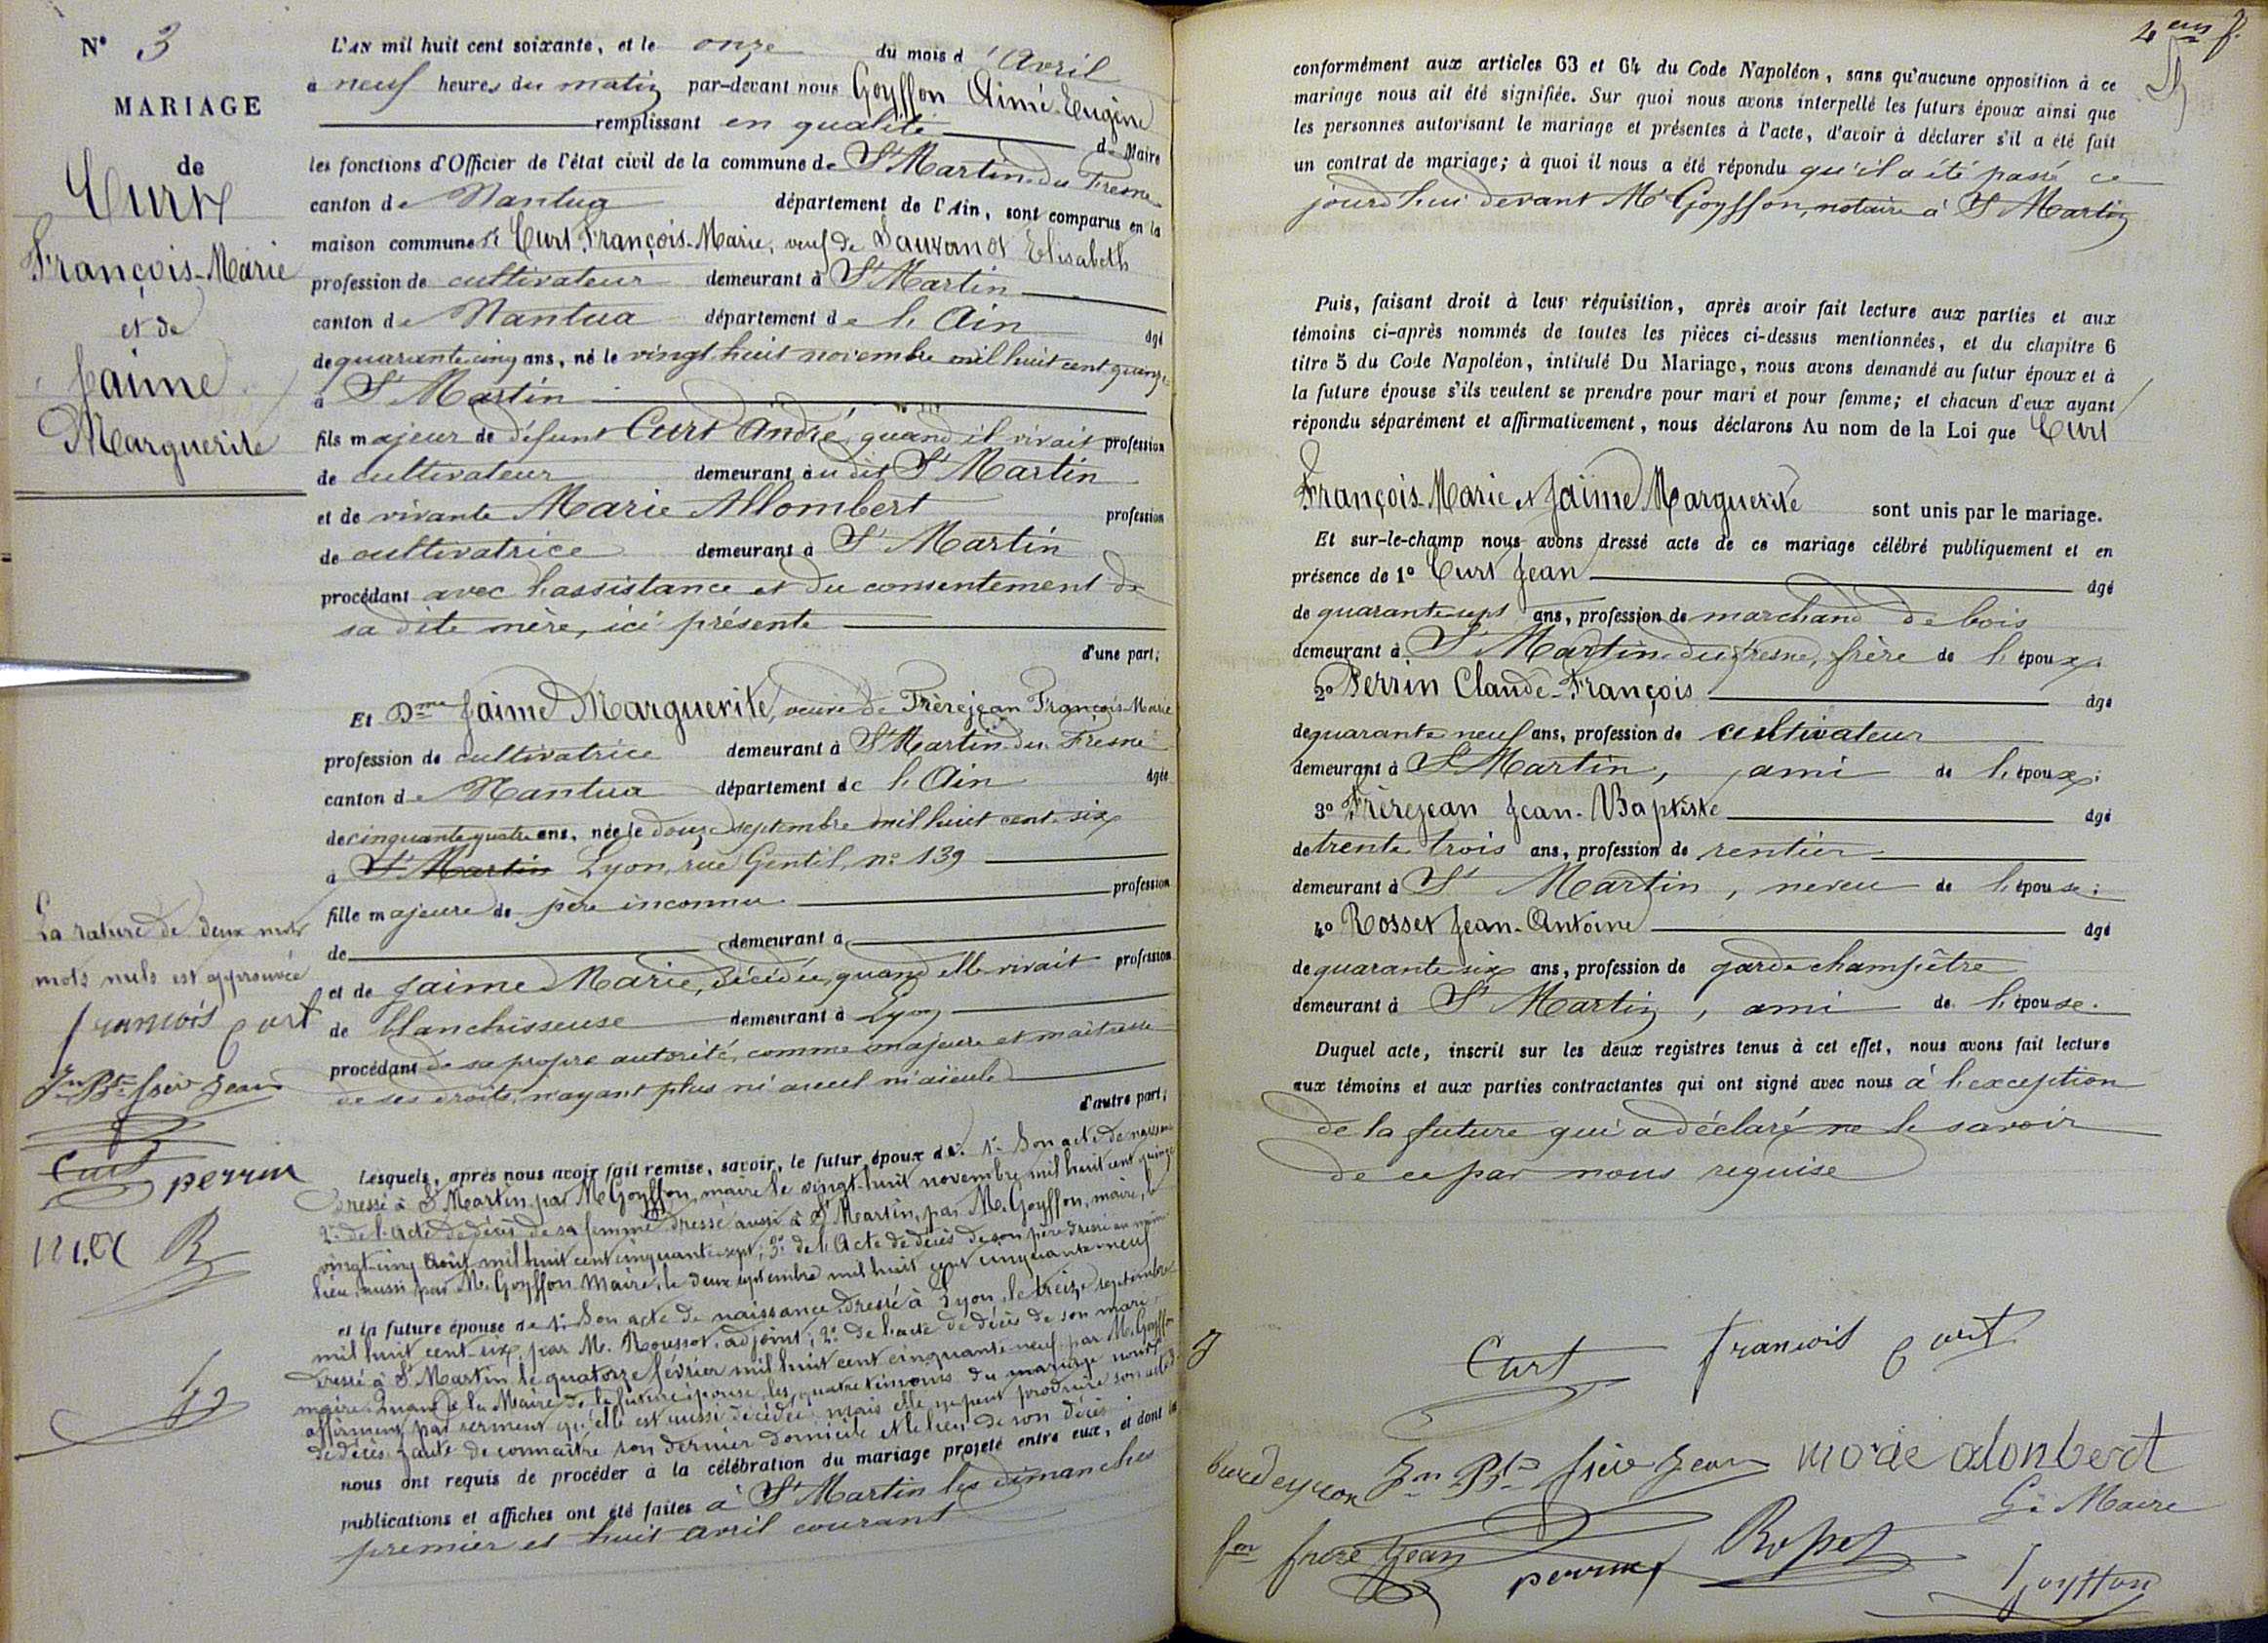 N° 3
MARIAGE
de
Curt
François-Marie
et de
Jaime
Marguerite
L'AN mil huit cent soixante, et le onze du mois d'Avril
à neuf heures du matin par-devant nous Goyffon Aimé-Eugène
remplissant en qualité de Maire
les fonctions d'Officier de l'état civil de la commune de St Martin-du Fresne
canton de Nantua département de l'Ain, sont comparus en la
maison commune Sr Curt François-Marie, veuf de Sauvanot Elisabeth
profession de cultivateur demeurant à St Martin
canton de Nantua département de l'Ain âgé
de quarante cinq ans, né le vingt huit novembre mil huit cent quinze
à St Martin
fils majeur de défunt Curt André, quand il vivait profession
de cultivateur demeurant au dit St Martin
et de vivante Marie Allombert profession
de cultivatrice demeurant à St Martin
procédant avec l'assistance et du consentement de
sa dite mère, ici présente
d'une part;
Et Dme Jaime Marguerite, veuve de Frèrejean François-Marie
profession de cultivatrice demeurant à St Martin-du-Fresne
canton de Nantua département de l'Ain âgée
de cinquante quatre ans, née le douze septembre mil huit cent six
à St Martin Lyon, rue Gentil, n° 139
fille majeure de père inconnu profession
de demeurant à
et de Jaime Marie, décédée, quand elle vivait profession
de blanchisseuse demeurant à Lyon
procédant de sa propre autorité, comme majeure et maîtresse
de ses droits, n'ayant plus ni aïeul ni aïeule
d'autre part;
Lesquels, après nous avoir fait remise, savoir, le futur époux de: 1° Son acte de naissance
dressé à St Martin par M Goyffon, maire le vingt-huit novembre mil huit cent quinze
2° de l'acte de décès de sa femme dressé aussi à St Martin, par M. Goyffon, maire, le
vingt-cinq Août mil huit cent cinquante-sept; 3° de l'Acte de décès de son père dressé au même
lieu, aussi par M. Goyffon Maire, le deux septembre mil huit cent cinquante-neuf
et la future épouse de 1° Son acte de naissance dressé à Lyon, le treize septembre
mil huit cent six, par M. Roussot, adjoint; 2° de l'acte de décès de son mari
dressé à St Martin le quatorze février mil huit cent cinquante neuf par M. Goyffon
maire. Quant à la Mère de la future épouse, les quatre témoins du mariage nous
affirment par serment qu'elle est aussi décédée, mais elle ne peut produire son acte
de décès faute de connaître son dernier domicile et le lieu de son décès.
nous ont requis de procéder à la célébration du mariage projeté entre eux, et dont les
publications et affiches ont été faites à St Martin les dimanches
premier et huit avril courant
La rature de deux mots
mots nuls est approuvée
francois Curt
Jn Bte frère Jean
Curt
perrin
R
4 em f.
conformément aux articles 63 et 64 du Code Napoléon, sans qu'aucune opposition à ce
mariage nous ait été signifiée. Sur quoi nous avons interpellé les futurs époux ainsi que
les personnes autorisant le mariage et présentes à l'acte, d'avoir à déclarer s'il a été fait
un contrat de mariage; à quoi il nous a été répondu qu'il a été passé ce
jourd'hui devant Me Goyffon, notaire à St Martin
Puis, faisant droit à leur réquisition, après avoir fait lecture aux parties et aux
témoins ci-après nommés de toutes les pièces ci-dessus mentionnées, et du chapitre 6
titre 5 du Code Napoléon, intitulé Du Mariage, nous avons demandé au futur époux et à
la future épouse s'ils veulent se prendre pour mari et pour femme; et chacun d'eux ayant
répondu séparément et affirmativement, nous déclarons Au nom de la Loi que Curt
François-Marie et Jaime Marguerite sont unis par le mariage.
Et sur-le-champ nous avons dressé acte de ce mariage célébré publiquement et en
présence de 1° Curt Jean âgé
de quarante sept ans, profession de marchand de bois
demeurant à St Martin-du-fresne, frère de l'époux.
2° Perrin Claude-François âgé
de quarante neuf ans, profession de cultivateur
demeurant à St Martin, ami de l'époux.
3° Frèrejean Jean-Baptiste âgé
de trente trois ans, profession de rentier
demeurant à St Martin, neveu de l'épouse;
4° Rosset Jean-Antoine âgé
de quarante six ans, profession de garde champêtre
demeurant à St Martin, ami de l'épouse.
Duquel acte, inscrit sur les deux registres tenus à cet effet, nous avons fait lecture
aux témoins et aux parties contractantes qui ont signé avec nous à l'exception
de la future qui a déclaré ne le savoir
de ce par nous requise
Curt francois Curt
Jn Bte frère Jean marie alonbert
Le Maire
fois frere Jean perrin Rosset
Goyffon